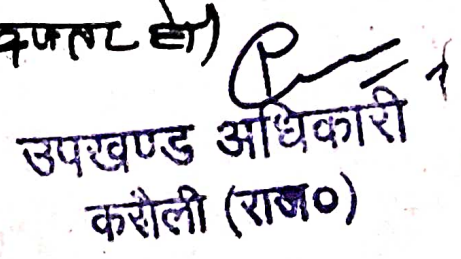 हो)
उपखण्ड अधिकारी
करौली (राज०)